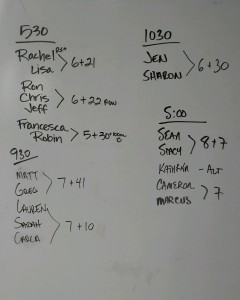 530
Rachel
Lisa > 6+21
Ron
Chris
Jeff > 6+22 row
Francesca
Robin > 5+30
930
MATT
GREG > 7+41
LAUREN
SARAH
CARLA > 7+10
1030
JEN
SHARON > 6+30
5:00
SEAN
STACY > 8+7
KATHRYN - ALT
CAMERON
MARCUS > 7